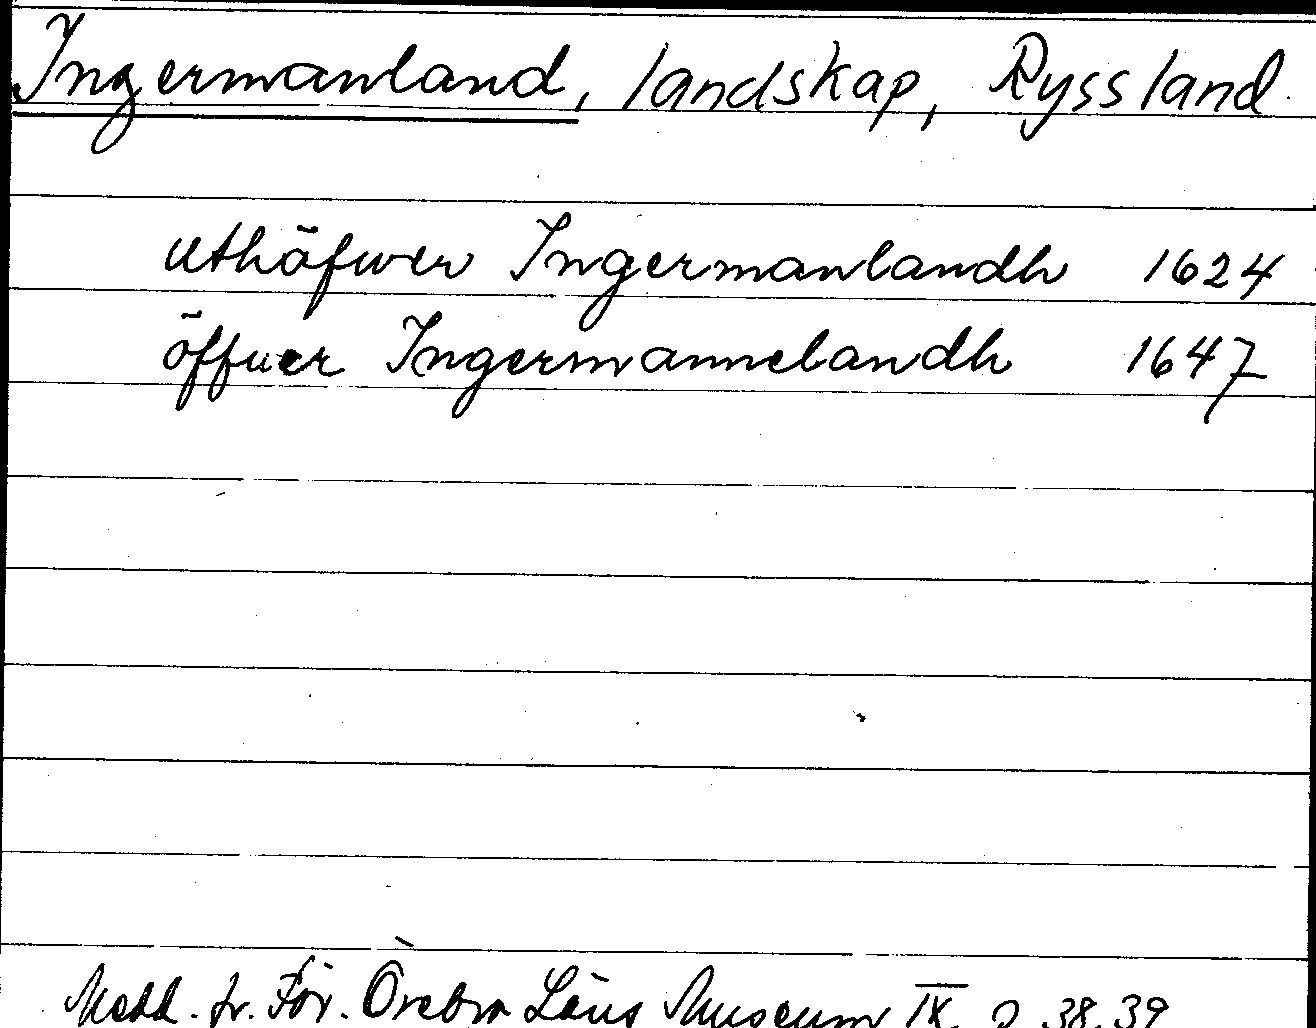 Ingermanland, landskap, Ryssland.
uthöfwer Ingermanlandh 1624
öffuer Ingermannelandh 1647
Medd. fr. För. Örebro Läns Museum IX, 38, 39